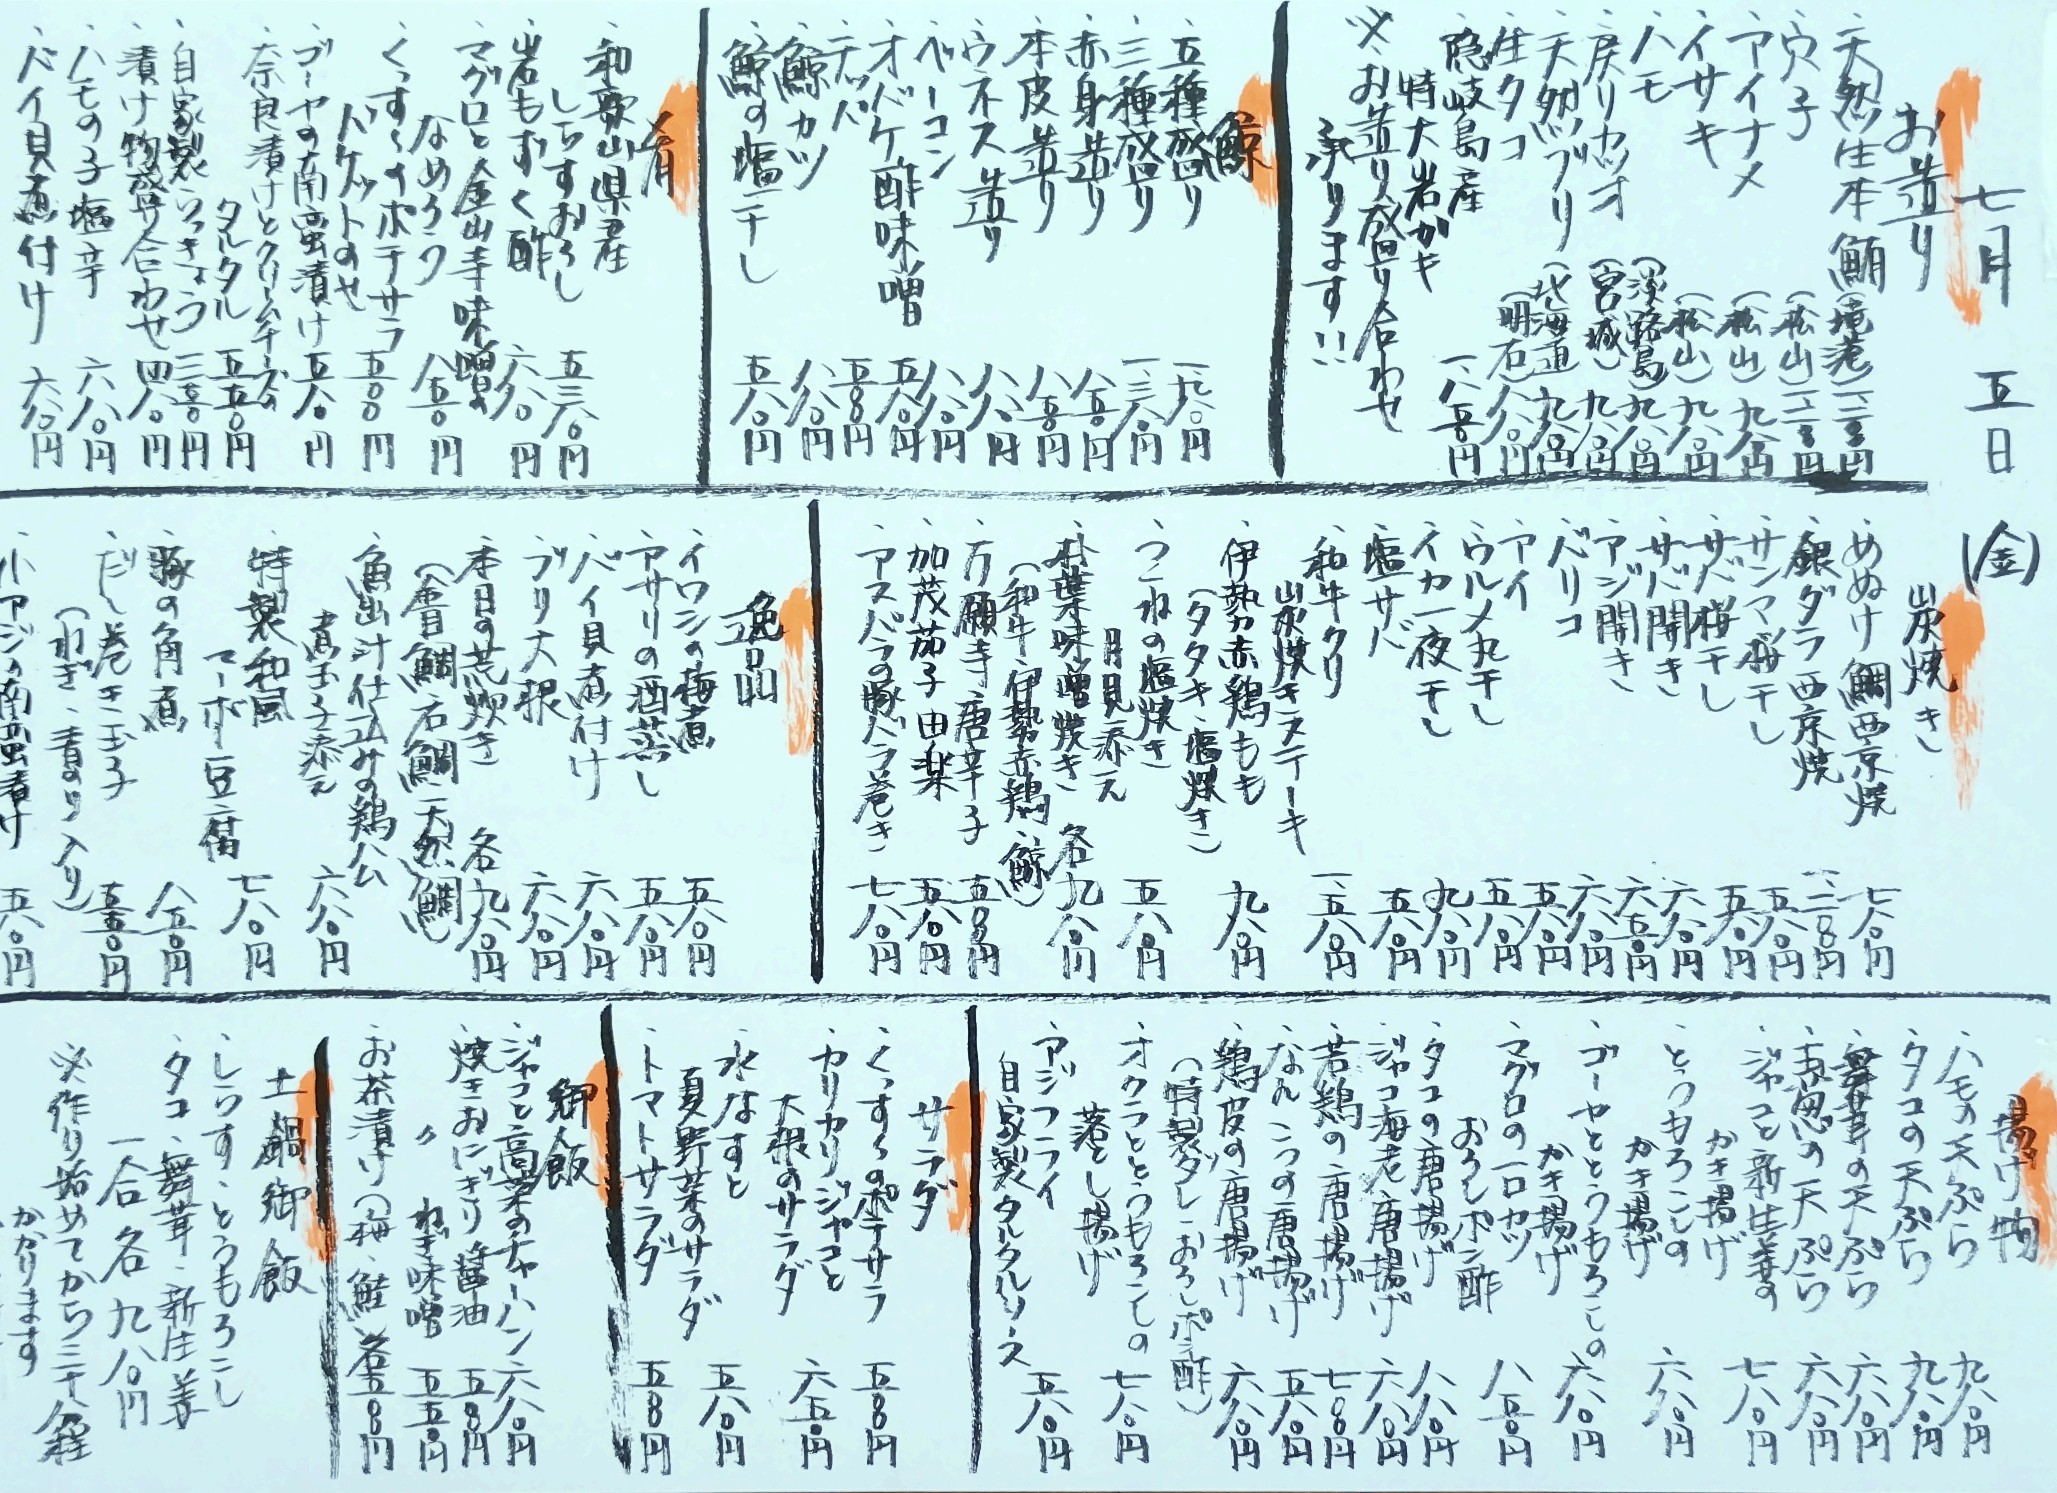 七月 五日 (金)
お造り
・天然生本鮪(境港)一、二〇〇円
・穴子(松山)一、二〇〇円
・アイナメ(松山)九八〇円
・イサキ(松山)九八〇円
・ハモ(淡路島)九八〇円
・戻りカツオ(宮城)九八〇円
・天然ブリ(北海道)九八〇円
・生タコ(明石)八八〇円
・隠岐島産
特大岩ガキ 一、八五〇円
※お造り盛り合わせ
承ります!!
鯨
・五種盛り 一、九八〇円
・三種盛り 一、三八〇円
・赤身造り 八五〇円
・本皮造り 八五〇円
・ウネス造り 八八〇円
・ベーコン 八八〇円
・オバケ酢味噌 五八〇円
・テッパ 五八〇円
・鯨カツ 八八〇円
・鯨の塩干し 五八〇円
肴
・和歌山県産
しらすおろし 五三〇円
・岩もずく酢 六八〇円
・マグロと金山寺味噌の
なめろう 八五〇円
・くっすぅのポテサラ
バケットのせ 五八〇円
・ゴーヤの南蛮漬け 五八〇円
・奈良漬けとクリームチーズの
タルタル 五五〇円
・自家製らっきょう 三八〇円
・漬け物盛り合わせ 四八〇円
・ハモの子塩辛 六八〇円
・バイ貝煮付け 六八〇円
炭焼き
・めぬけ鯛西京焼 七八〇円
・銀ダラ西京焼 一、二八〇円
・サンマ梅干し 五八〇円
・サバ梅干し 五八〇円
・サバ開き 六八〇円
・アジ開き 六五〇円
・バリコ 六八〇円
・アイ 五八〇円
・ウルメ丸干し 五八〇円
・イカ一夜干し 九八〇円
・塩サバ 五八〇円
・和牛クリ
炭焼きステーキ 一、五八〇円
・伊勢赤鶏もも
(タタキ・塩焼き) 九八〇円
・つくねの塩焼き
月見添え 五八〇円
・朴葉味噌焼き 各九八〇円
(和牛・伊勢赤鶏・鯨)
・万願寺唐辛子 五八〇円
・加茂茄子田楽 五八〇円
・アスパラの豚バラ巻き 七八〇円
逸品
・イワシの梅煮 五八〇円
・アサリの酒蒸し 五八〇円
・バイ貝煮付け 六八〇円
・ブリ大根 六八〇円
・本日の荒炊き 各九八〇円
(金目鯛・石鯛・天然鯛)
・魚出汁仕込みの鶏公
煮玉子添え 六八〇円
・特製和風
マーボー豆腐 七八〇円
・豚の角煮 八五〇円
・だし巻き玉子 五五〇円
(ねぎ・青のり入り)
・小アジの南蛮漬け 五八〇円
揚げ物
・ハモの天ぷら 九八〇円
・タコの天ぷら 九八〇円
・舞茸の天ぷら 六八〇円
・お葱の天ぷら 六八〇円
・ジャコと新生姜の
かき揚げ 七八〇円
・とうもろこしの
かき揚げ 六八〇円
・ゴーヤととうもろこしの
かき揚げ 六八〇円
・マグロの一口カツ
おろしポン酢 八五〇円
・タコの唐揚げ 八八〇円
・ジャコ海老唐揚げ 六八〇円
・若鶏の唐揚げ 七八〇円
・なんこつの唐揚げ 五八〇円
・鶏皮の唐揚げ 六八〇円
(特製ダレ・おろしポン酢)
・オクラととうもろこしの
落とし揚げ 七八〇円
・アジフライ
自家製タルタルソース 五八〇円
サラダ
・くっすぅのポテサラ 五八〇円
・カリカリジャコと
大根のサラダ 六五〇円
・水なすと
夏野菜のサラダ 五八〇円
・トマトサラダ 五八〇円
御飯
・ジャコと高菜のチャーハン 六八〇円
・焼きおにぎり醤油 五八〇円
〃 ねぎ味噌 五五〇円
・お茶漬け(梅・鮭)各五八〇円
土鍋御飯
・しらす・とうもろこし
・タコ・舞茸・新生姜
一合各九八〇円
※作り始めてから三十分程
かかります